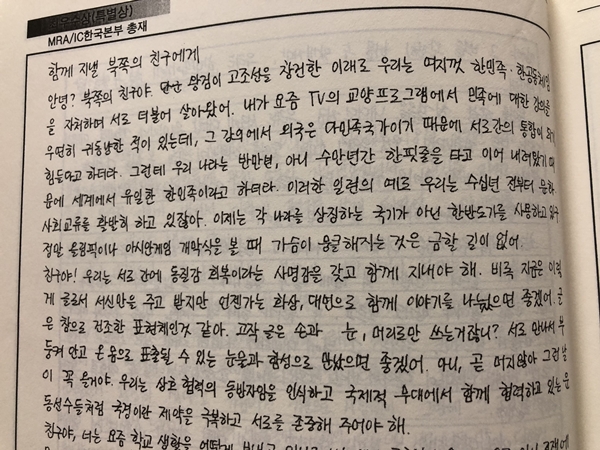 수상(특별상)
MRA/IC한국본부 총재
함께 지낼 북쪽의 친구에게
안녕? 북쪽의 친구야. 단군 왕검이 고조선을 창건한 이래로 우리는 여지껏 한민족·한공동체임
을 자처하며 서로 더불어 살아왔어. 내가 요즘 TV의 교양프로그램에서 민족에 대한 강의를
우연히 귀동냥한 적이 있는데, 그 강의에서 외국은 다민족국가이기 때문에 서로간의 통합이
힘들다고 하더라. 그런데 우리 나라는 반만년, 아니 수만년간 한핏줄을 타고 이어 내려왔기 때
문에 세계에서 유일한 한민족이라고 하더라. 이러한 일련의 예로 우리는 수십년 전부터 문화,
사회교류를 활발히 하고 있잖아. 이제는 각 나라를 상징하는 국기가 아닌 한반도기를 사용하고 있구
정말 올림픽이나 아시안게임 개막식을 볼 때 가슴이 뭉클해지는 것은 금할 길이 없어.
친구야! 우리는 서로 간에 동질감 회복이라는 사명감을 갖고 함께 지내야 해. 비록 지금은 이렇
게 글로서 서신만을 주고 받지만 언젠가는 화상, 대면으로 함께 이야기를 나눴으면 좋겠어. 글
은 참으로 건조한 표현체인것 같아. 고작 글은 손과 눈, 머리로만 쓰는거잖니? 서로 만나서 부
둥켜 안고 온몸으로 표출될 수 있는 눈물과 함성으로 만났으면 좋겠어. 아니, 곧 머지않아 그런 날
이 꼭 올거야. 우리는 상호 협력의 동반자임을 인식하고 국제적 무대에서 함께 협력하고 있는 운
동선수들처럼 국경이란 제약을 극복하고 서로를 존중해 주어야 해.
친구야, 너는 요즘 학교 생활을 어떻게 보내고